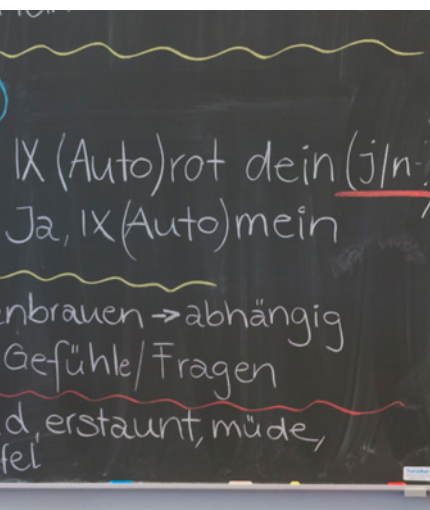 IX (Auto) rot dein (j/n-
Ja, IX (Auto) mein
enbrauen → abhängig
Gefühle / Fragen
d, erstaunt, müde,
fel